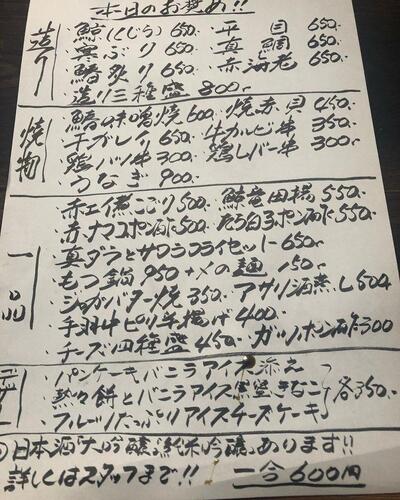 本日のお奨め!!
造り
・鯨(くじら)650.
・平目 650.
・寒ぶり 650.
・真鯛 650.
・鰆炙り 650.
・赤海老 650.
・造り三種盛 800-
焼物
・鰆の味噌焼 600
・焼赤貝 450.
・干ガレイ 650.
・牛カルビ串 350.
・鶏ハツ串 300.
・鶏レバー串 300.
・うなぎ 900.
一品
・赤エイ煮こごり 500.
・鯨竜田揚 550.
・赤ナマコポン酢 500.
・たら白子ポン酢 550.
・真ダラとサワラフライセット 650-
・もつ鍋 950 +〆の麺 150-
・ジャガバター焼 350.
・アサリ酒蒸し 500
・手羽中ピリ辛揚げ 400.
・チーズ四種盛 450.
・ガツポン酢 300
・パンケーキバニラアイス添え
・熱々餅とバニラアイス黒蜜きなこ
・フルーツたっぷりアイスチーズケーキ
各350.
日本酒「大吟醸」「純米吟醸」あります!!
詳しくはスタッフまで!! 一合600円